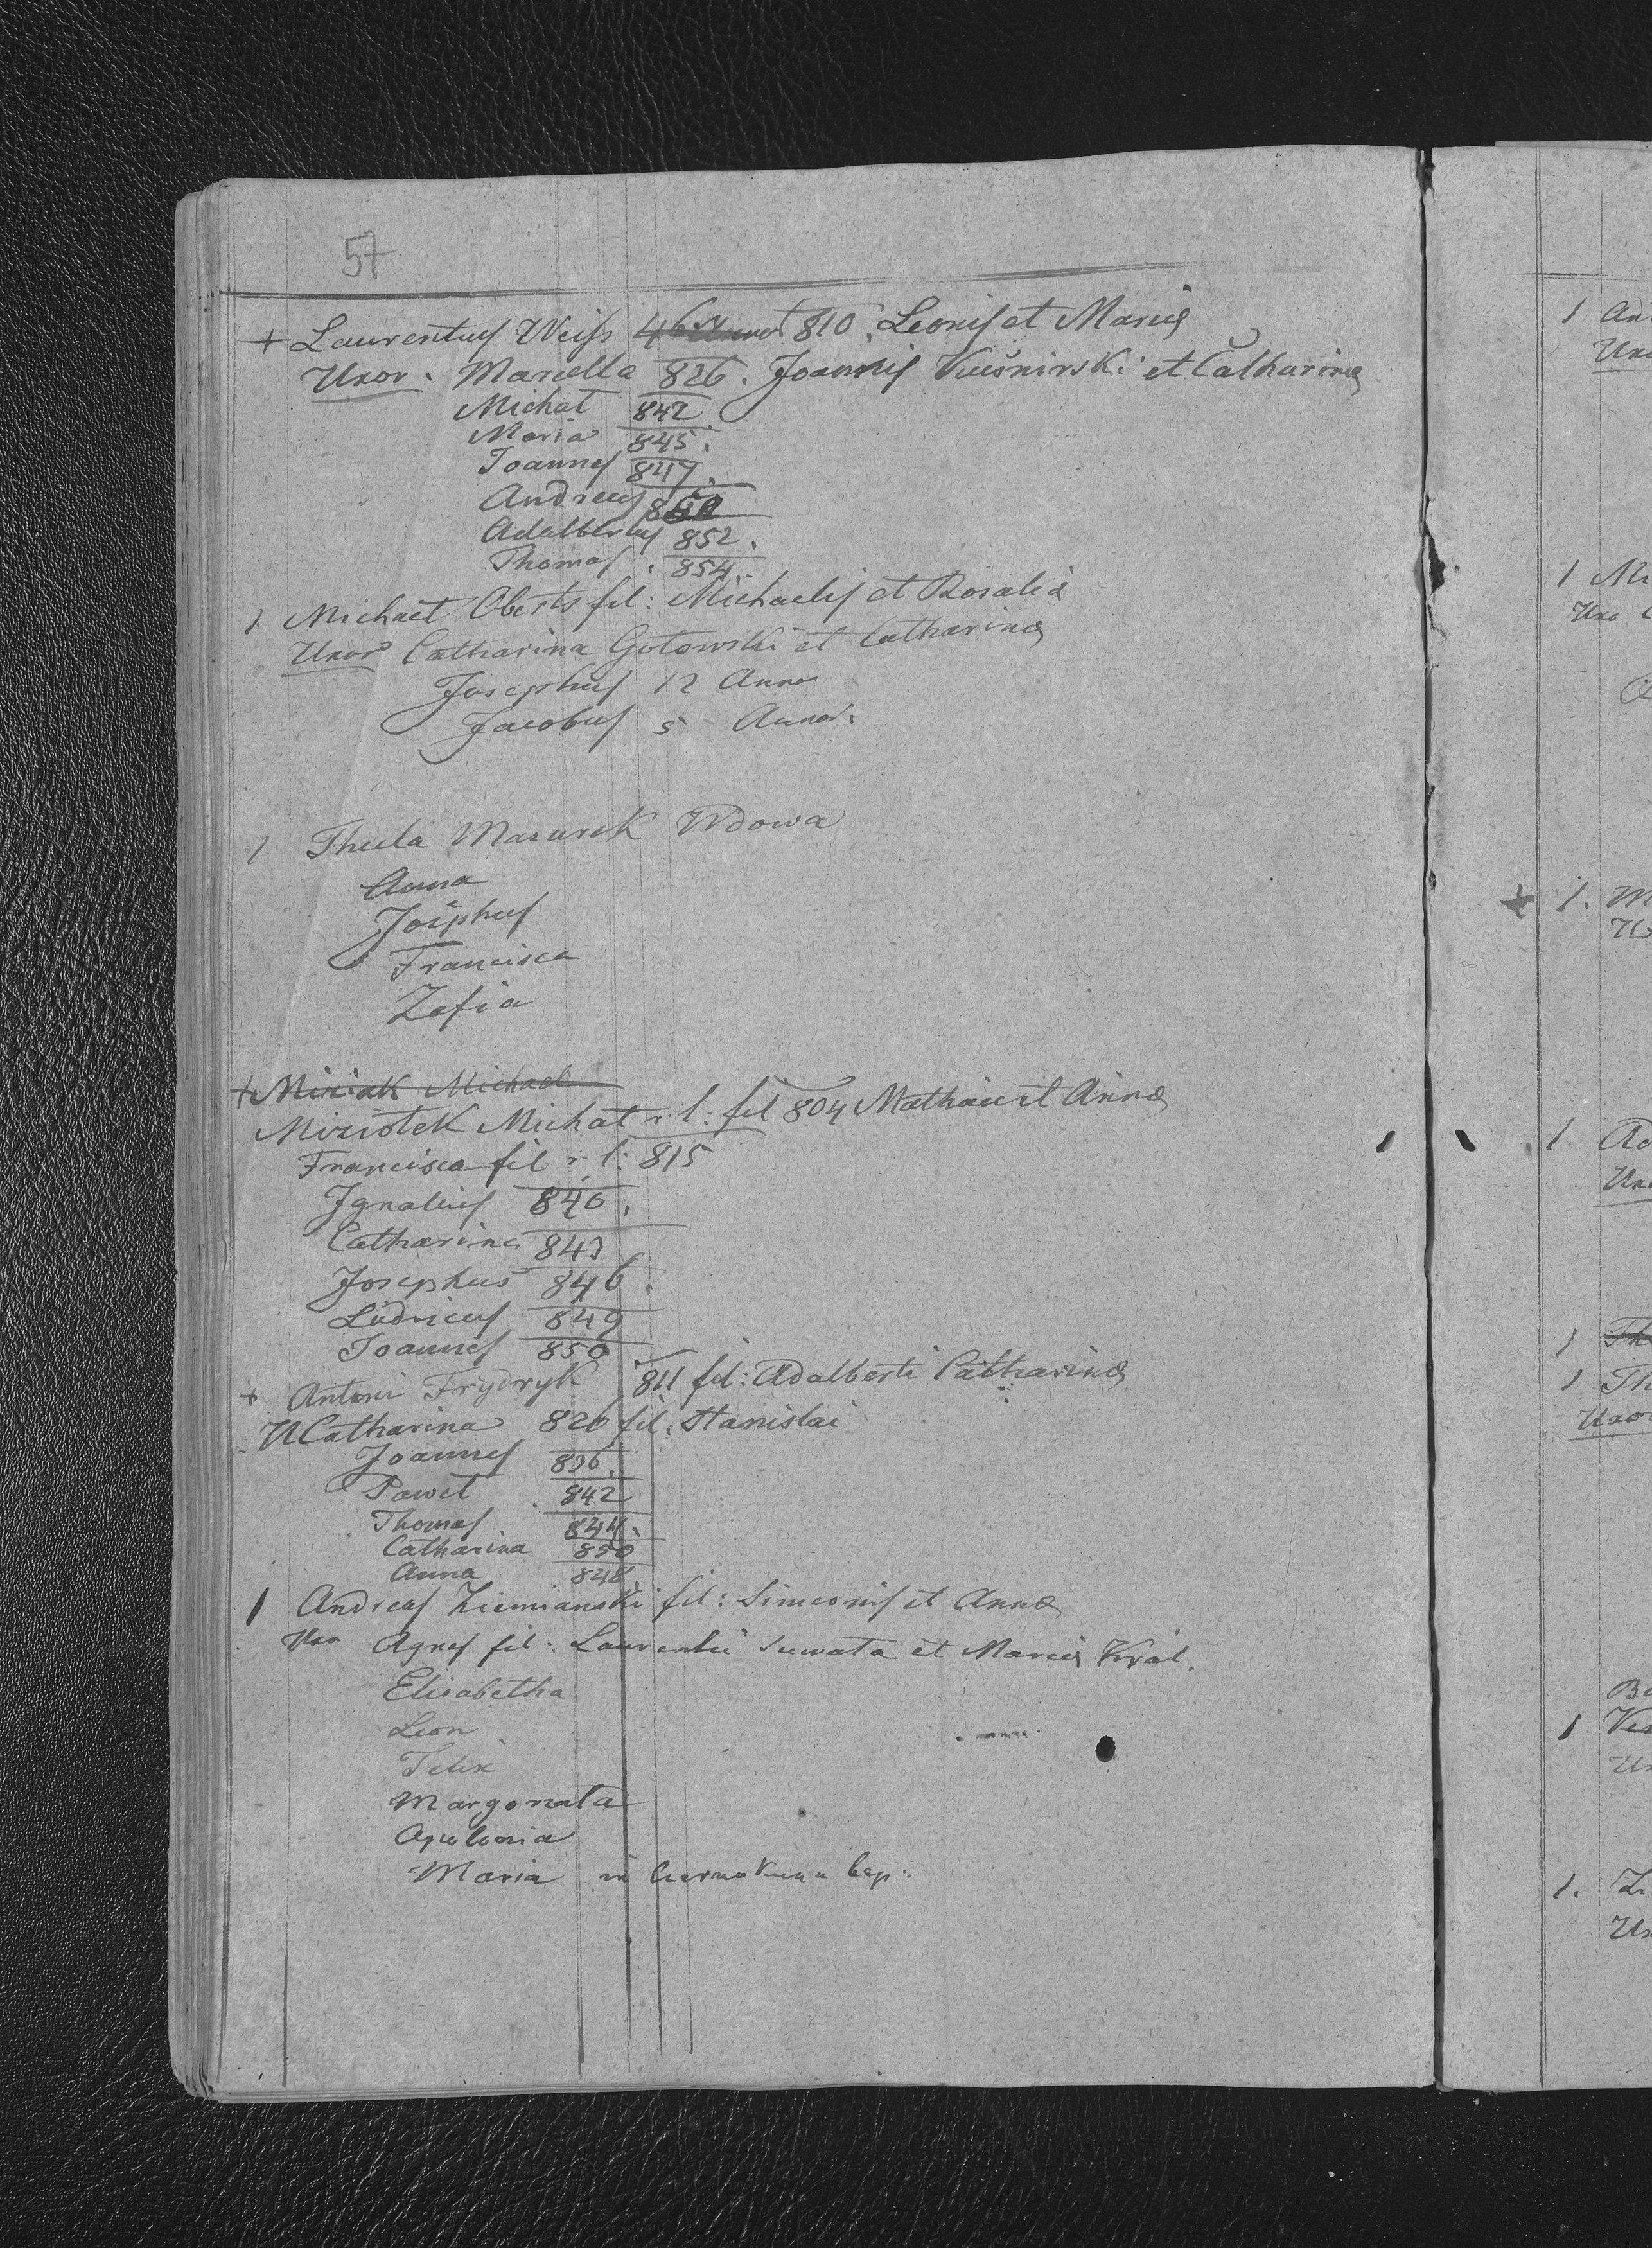 57
+ Laurentius Weiss 810. Leonis et Mariæ
Uxor. Marcella 826. Joannis Kuśnirski et Catharinæ
Michał 842
Maria 845.
Joannes 847.
Andreas 850
Adalbertus 852.
Thomas. 854.
1 Michaël Oberts fil: Michaelis et Rosaliæ
Uxor Catharina Gotowski et Catharinæ
Josephus 12 Anno
Jacobus 5 Annor.
1 Thecla Mazurek Wdowa
Anna
Josephus
Francisca
Zofia
+ Miziak Michael
Miziołek Michał r. l: fil 804 Mathiæ et Annæ
Francisca fil r. l: 815
Ignatius 840.
Catharina 843
Josephus 846.
Ludvicus 849
Joannes 850
+ Antoni Frydryk 811 fil: Adalberti Catharinæ
U Catharina 820 fil: Stanislai
Joannes 836.
Paweł 842
Thomas 844.
Catharina 850
Anna 848
1 Andreas Ziemianski fil: Simeonis et Annæ
Uxo Agnes fil: Laurentii Suwata et Mariæ Król.
Elisabetha
Leon
Felix
Margorzata
Apolonia
Maria in bap:
1 An
Uxo
1 Mi
Uxo C
+ 1. M
Ux
1 Ad
Uxo
1 Th
1 Th
Uxor
Ba
1 Ves
Ux
1. Zi
Ux